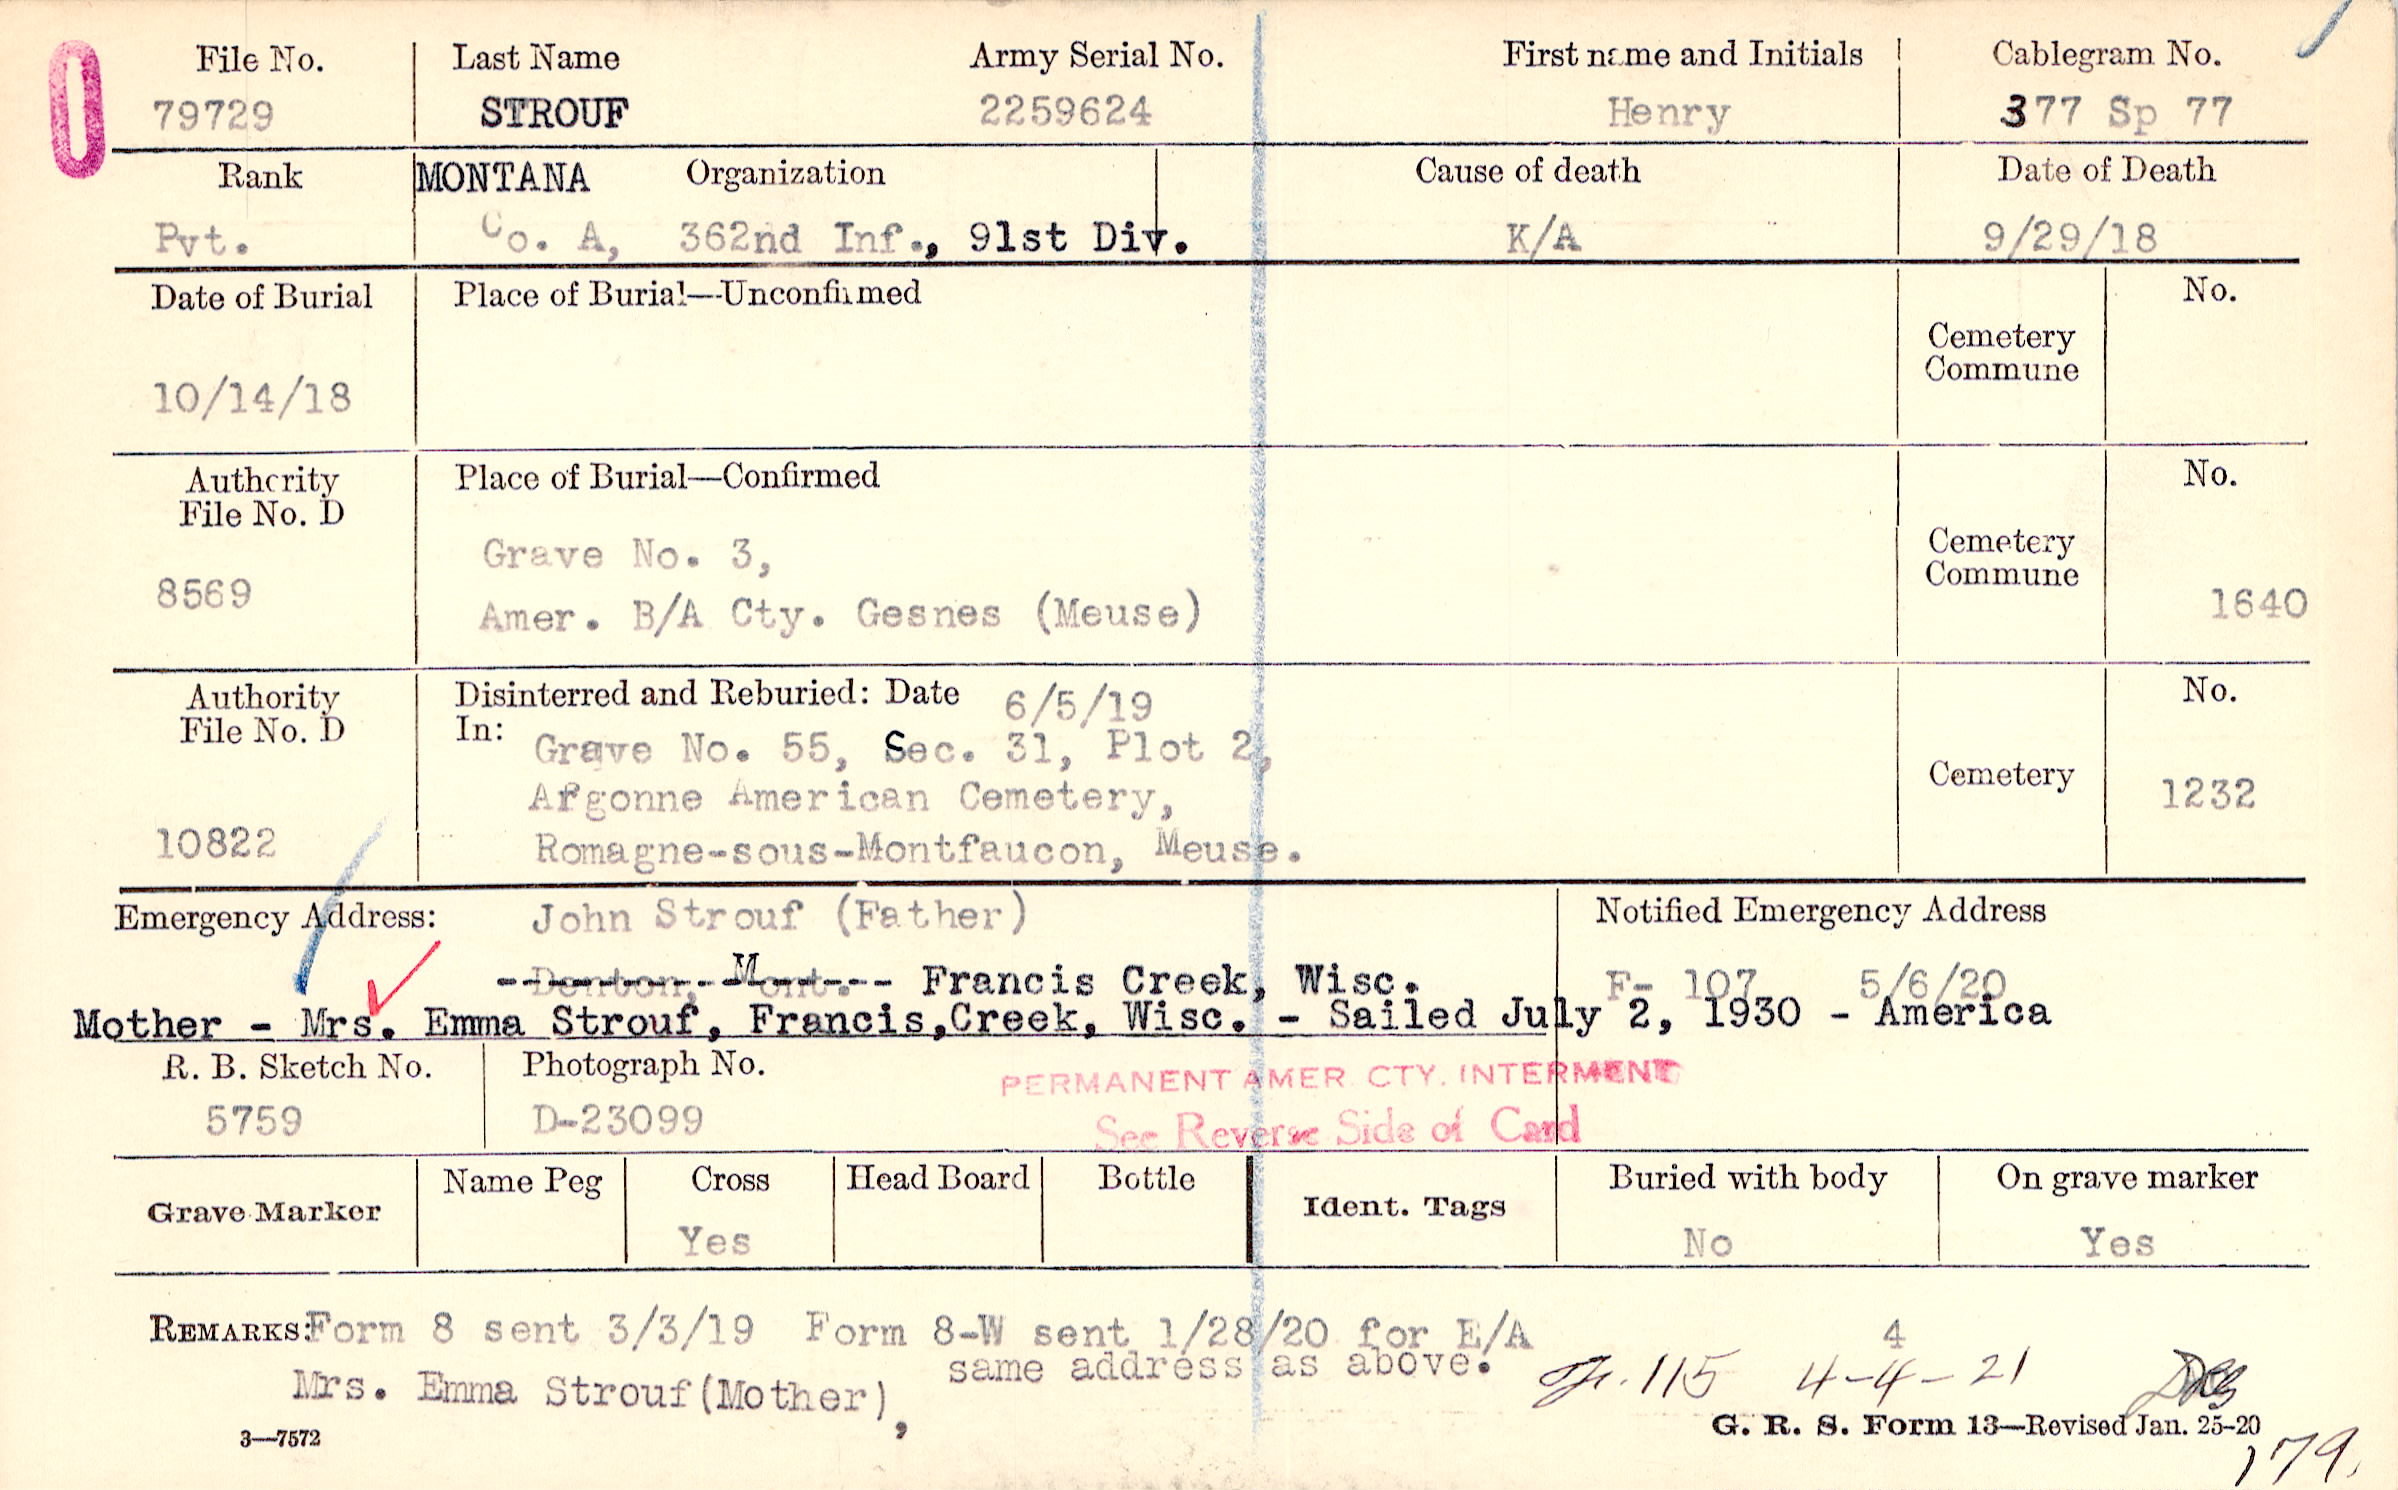 File No. Last Name Army Serial No. First name and Initials Cablegram No.
79729 STROUF 2259624 Henry 377 Sp 77
Rank MONTANA Organization Cause of death Date of Death
Pvt. Co. A, 362nd Inf., 91st Div. K/A 9/29/18
Date of Burial Place of Burial—Unconfirmed No.
Cemetery
Commune
10/14/18
Authority Place of Burial—Confirmed No.
File No. D
Grave No. 3, Cemetery
8569 Commune
Amer. B/A Cty. Gesnes (Meuse) 1640
Authority Disinterred and Reburied: Date 6/5/19 No.
File No. D In:
Grave No. 55, Sec. 31, Plot 2,
Argonne American Cemetery, Cemetery 1232
10822 Romagne-sous-Montfaucon, Meuse.
Emergency Address: John Strouf (Father) Notified Emergency Address
Denton, Mont. Francis Creek, Wisc. F- 107 5/6/20
Mother - Mrs. Emma Strouf, Francis,Creek, Wisc. - Sailed July 2, 1930 - America
R. B. Sketch No. Photograph No. PERMANENT AMER. CTY. INTERMENT
5759 D-23099 See Reverse Side of Card
Grave Marker Name Peg Cross Head Board Bottle Ident. Tags Buried with body On grave marker
Yes No Yes
REMARKS: Form 8 sent 3/3/19 Form 8-W sent 1/28/20 for E/A 4
same address as above.
Mrs. Emma Strouf(Mother), 115 4-4-21
G. R. S. Form 13—Revised Jan. 25-20
3—7572
179.